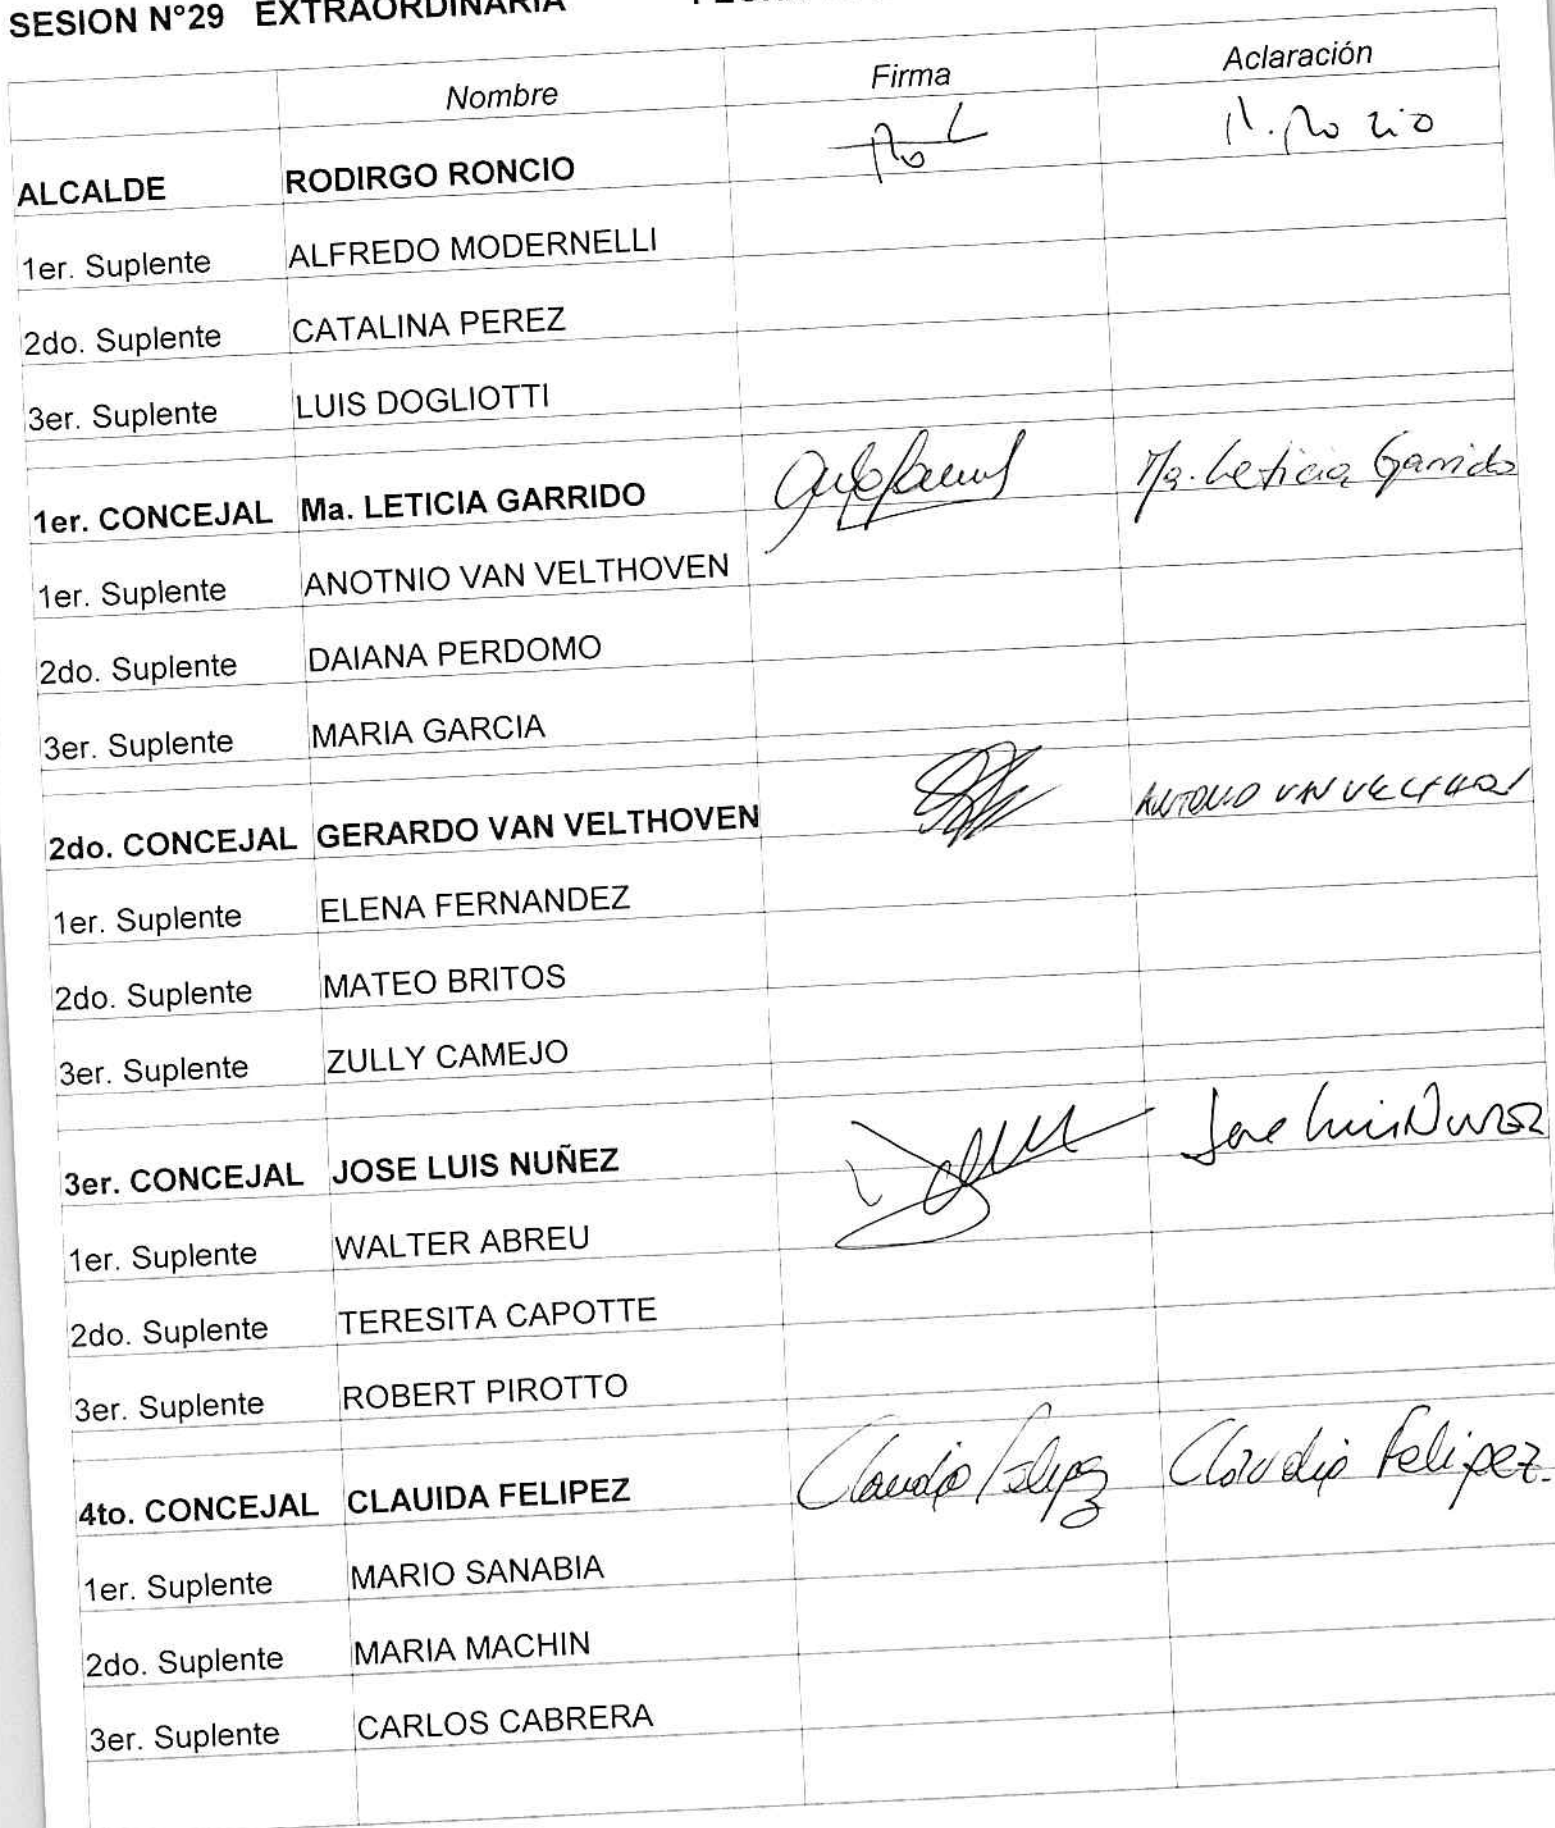 SESION N°29 EXTRAORDINARIA
Nombre Firma Aclaración
ALCALDE RODIRGO RONCIO
1er. Suplente ALFREDO MODERNELLI
2do. Suplente CATALINA PEREZ
3er. Suplente LUIS DOGLIOTTI
1er. CONCEJAL Ma. LETICIA GARRIDO Ma. Leticia Garrido
1er. Suplente ANOTNIO VAN VELTHOVEN
2do. Suplente DAIANA PERDOMO
3er. Suplente MARIA GARCIA
2do. CONCEJAL GERARDO VAN VELTHOVEN ANTONIO VAN
1er. Suplente ELENA FERNANDEZ
2do. Suplente MATEO BRITOS
3er. Suplente ZULLY CAMEJO
3er. CONCEJAL JOSE LUIS NUÑEZ Jose Luis Nuñez
1er. Suplente WALTER ABREU
2do. Suplente TERESITA CAPOTTE
3er. Suplente ROBERT PIROTTO
4to. CONCEJAL CLAUIDA FELIPEZ Claudia Felipez Claudia Felipez.
1er. Suplente MARIO SANABIA
2do. Suplente MARIA MACHIN
3er. Suplente CARLOS CABRERA